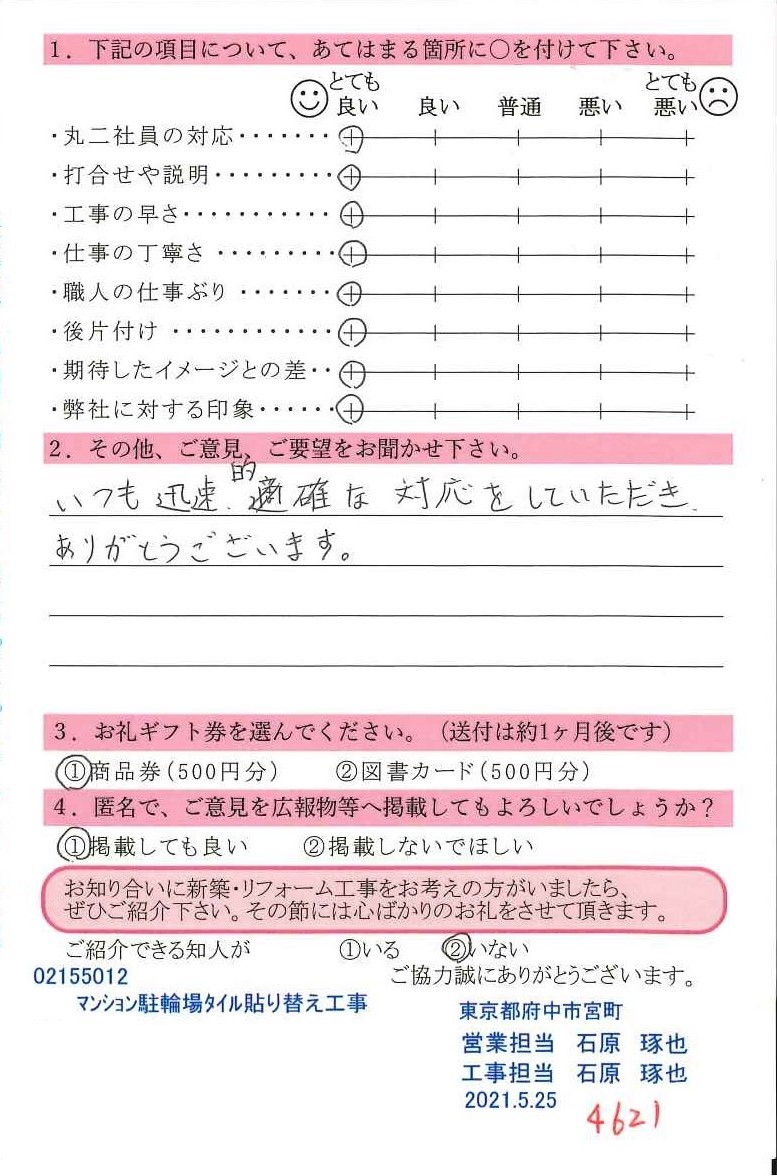 1．下記の項目について、あてはまる箇所に○を付けて下さい。
とても良い 良い 普通 悪い とても悪い
・丸二社員の対応・・・・・・・
・打合せや説明・・・・・・・・・
・工事の早さ・・・・・・・・・・・
・仕事の丁寧さ・・・・・・・・・
・職人の仕事ぶり・・・・・・・
・後片付け・・・・・・・・・・・・
・期待したイメージとの差・・
・弊社に対する印象・・・・・・
2．その他、ご意見、ご要望をお聞かせ下さい。
いつも迅速、的確な対応をしていただき、
ありがとうございます。
3．お礼ギフト券を選んでください。（送付は約1ヶ月後です）
①商品券（500円分） ②図書カード（500円分）
4．匿名で、ご意見を広報物等へ掲載してもよろしいでしょうか？
①掲載しても良い ②掲載しないでほしい
お知り合いに新築・リフォーム工事をお考えの方がいましたら、
ぜひご紹介下さい。その節には心ばかりのお礼をさせて頂きます。
ご紹介できる知人が ①いる ②いない
02155012 ご協力誠にありがとうございます。
マンション駐輪場タイル貼り替え工事
東京都府中市宮町
営業担当 石原 琢也
工事担当 石原 琢也
2021.5.25
4621